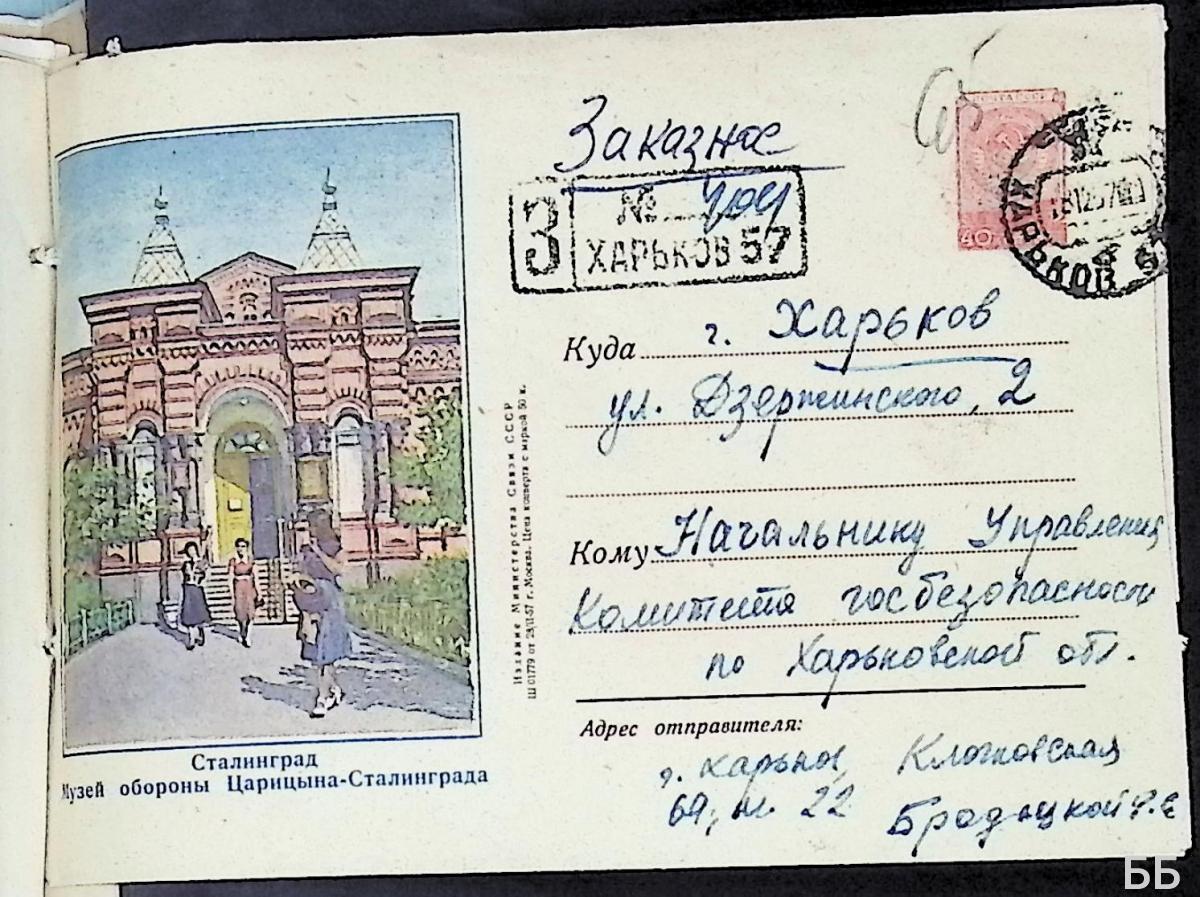 Заказное
З
№ 404
ХАРЬКОВ 57
40
ХАРЬКОВ
Куда г. Харьков
ул. Дзержинского, 2
Кому Начальнику Управления
Комитета госбезопасности
по Харьковской обл.
Адрес отправителя:
г. Харьков, Клочковская
69, 22
Издание Министерства Связи СССР
Ш 01779 от 28/II-57 г. Москва. Цена конверта с маркой 50 к.
Сталинград
Музей обороны Царицына-Сталинграда
ББ